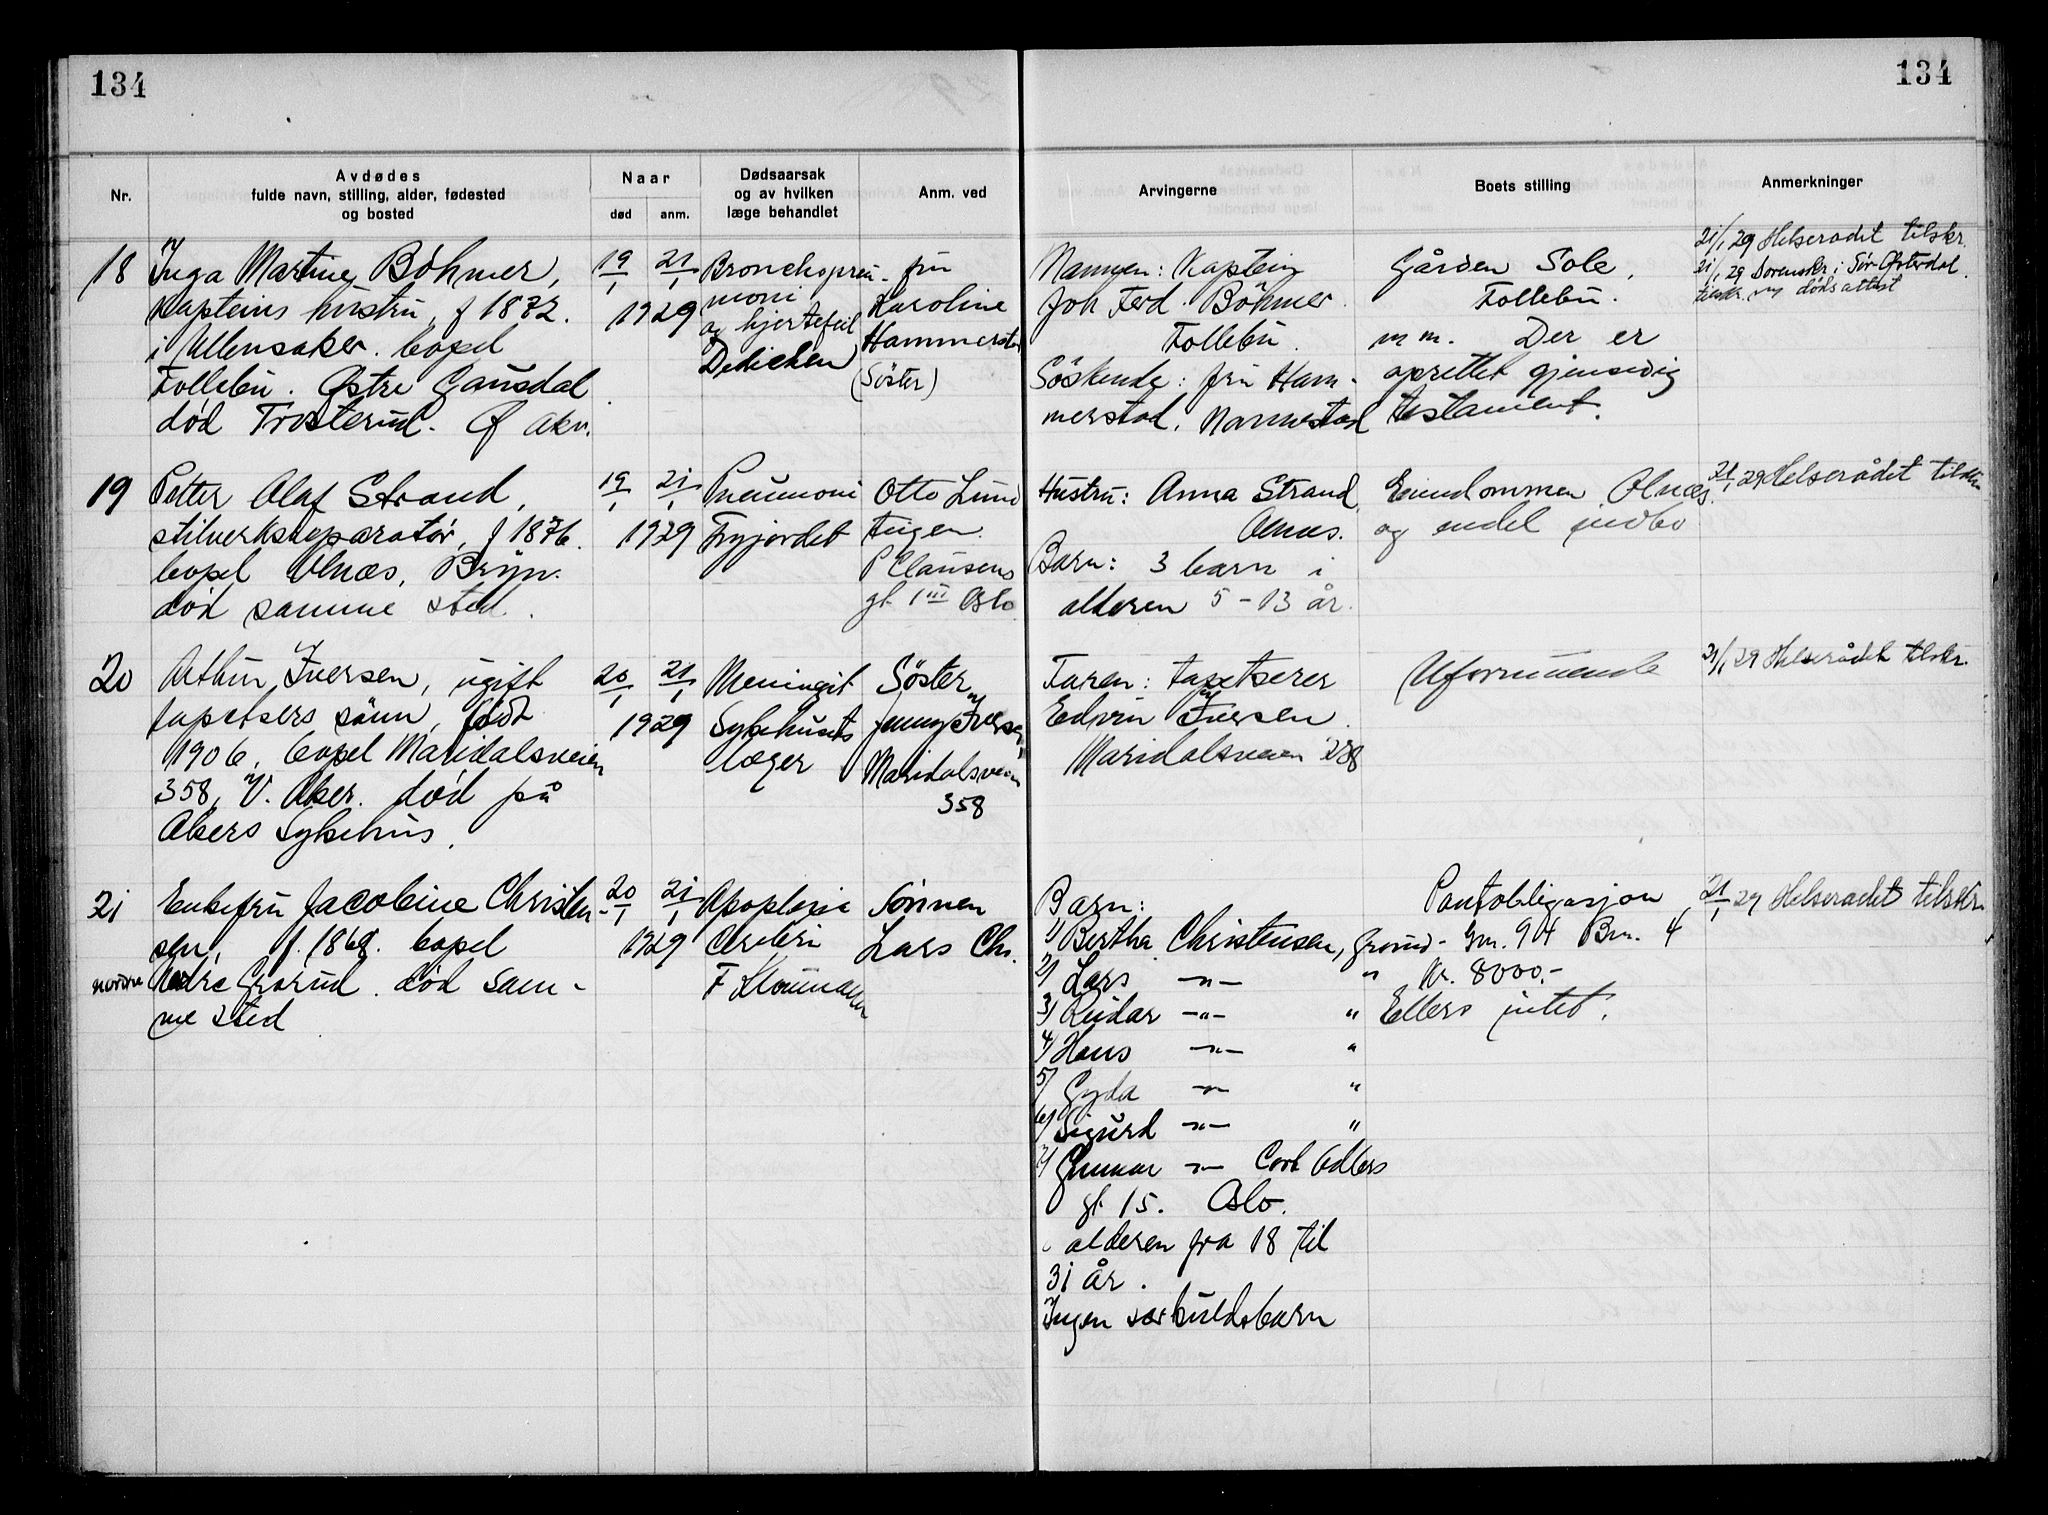 134
134
Nr.
Avdødes
fulde navn, stilling, alder, fødested
og bosted
Naar
død
anm.
Dødsaarsak
og av hvilken
læge behandlet
Anm. ved
Arvingerne
Boets stilling
Anmerkninger
18
Inga Martine Böhmer,
kapteins hustru, f 1872.
i Ullensaker. bopel
Follebu. Østre Gausdal
død Trosterud. Ø Aker.
19/1 21/1
1929
Bronchopneu-
moni
og hjertefeil
Dedichen
fru
Karoline
Hammerstad
(Søster)
Mannen: Kaptein
Joh Ferd. Böhmer.
Follebu.
Söskende: fru Ham-
merstad, Nannestad
Gården Sole,
Follebu.
m m. Der er
oprettet gjensidig
testament.
21/1 29 Helserådet tilskr.
21/1 29 Sorenskr. i Sør-Østerdal
tilskr. dødsattest
19
Petter Olaf Strand,
f 1876.
bopel Alnæs, Bryn.
død samme sted.
19/1 21/1
1929
Pneumoni
Fryjordet
Otto Lund
teigen.
P Clausens
gt. 1 III Oslo
Hustru: Anna Strand
Alnæs.
Barn: 3 barn i
alderen 5-13 år.
Eiendommen Alnæs.
og endel indbo
21/1 29 Helserådet tilskr
20
Arthur Iversen, ugift
tapetsers sønn, født
1906, bopel Maridalsveien
358, V. Aker. død på
Akers Sykehus.
20/1 21/1
1929
Meningit
Sykehusets
læger
Søster
Jenny Iversen
Maridalsveien
358
Faren: tapetserer
Edvin Iversen.
Maridalsveien 358
Uformuende
21/1 29 Helserådet tilskr.
21
Enkefru Jacobine Christen-
sen, f. 1868. bopel
nordre Grorud. død sam-
me sted
20/1 21/1
1929
Apoplexia
Cerebri
F Kloumann
Sønnen
Lars Chr.
Barn:
1) Bertha Christensen, Grorud-
2) Lars -"- "
3) Reidar -"- "
4) Hans -"- "
5) Gyda -"- "
6) Sigurd -"- "
7) Gunnar -"- Cort Adlers
gt. 15. Oslo.
i alderen fra 18 til
31 år.
Ingen særkuldsbarn
Pantobligasjon
Gm. 94 Bm. 4
Kr. 8000.-
Ellers intet.
21/1 29 Helserådet tilskr.